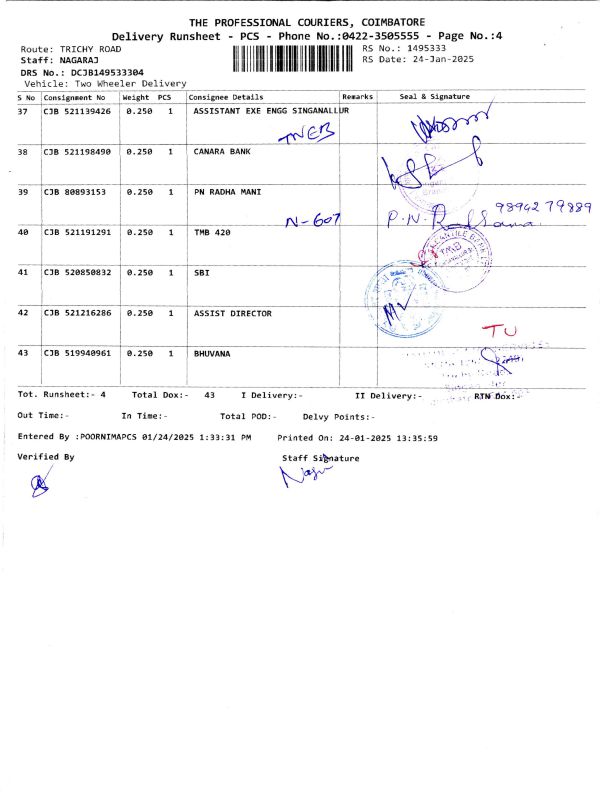 THE PROFESSIONAL COURIERS, COIMBATORE
Delivery Runsheet - PCS - Phone No.:0422-3505555 - Page No.:4
Route: TRICHY ROAD RS No.: 1495333
Staff: NAGARAJ RS Date: 24-Jan-2025
DRS No.: DCJB149533304
Vehicle: Two Wheeler Delivery
S No Consignment No Weight PCS Consignee Details Remarks Seal & Signature
37 CJB 521139426 0.250 1 ASSISTANT EXE ENGG SINGANALLUR
TNEB
38 CJB 521198490 0.250 1 CANARA BANK
39 CJB 80893153 0.250 1 PN RADHA MANI
N-607 P.N. 9894279889
40 CJB 521191291 0.250 1 TMB 420
TMB
41 CJB 520850832 0.250 1 SBI
42 CJB 521216286 0.250 1 ASSIST DIRECTOR
TU
43 CJB 519940961 0.250 1 BHUVANA
Tot. Runsheet:- 4 Total Dox:- 43 I Delivery:- II Delivery:- RTN Dox:-
Out Time:- In Time:- Total POD:- Delvy Points:-
Entered By :POORNIMAPCS 01/24/2025 1:33:31 PM Printed On: 24-01-2025 13:35:59
Verified By Staff Signature